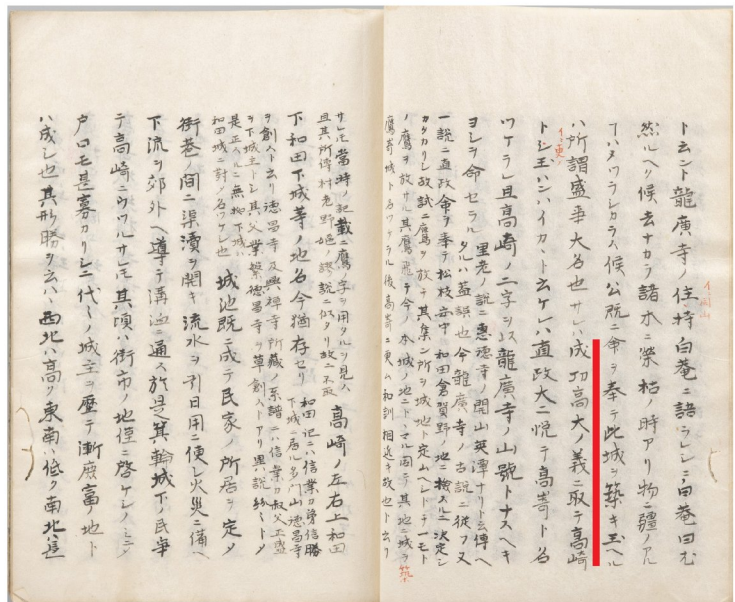 トエント龍廣寺ノ住持白菴ニ語ラレシニ白菴曰ム
然ルヘク候去ナカラ諸木ニ榮枯ノ時アリ物ニ疆ノアル
ハ候公既ニ命ヲ奉テ此城ヲ築キ玉ヘル
ハ所謂盛事大名也サレハ成功高大ノ義ニ取テ高崎
トシ玉ハンハイカヽト云ケレハ直政大ニ悦テ高嵜ト名
ツケラレ且高崎ノ二字ヲ以龍廣寺ノ山號トナスヘキ
ヨシヲ命セラル
里老ノ説ニ惠徳寺ノ開山英潭ナリト云傳ヘ
タルハ蓋誤也今龍廣寺ノ古説ニ從フ又
一説ニ直政命ヲ奉テ松枝安中和田倉賀野ノ地ニ檢スルニ決定シ
カタカリシ故試ニ鷹ヲ放テ其集ン所ヲ城地ト定ムヘシトテ一モト
ノ鷹ヲ放サル其鷹飛テ今ノ本城ノ地ニトヽマル因テ其地ニ城ヲ築
鷹嵜城ト名ツケラル後高嵜ニ更ム和訓相近キ故也ト云リ
サレモ當時ノ記載ニ鷹ノ字ヲ用タルヲ見ス
且其所傳村老野嫗ノ談説ニ似タリ故ニ不取
高崎ノ左右上和田
下和田下城等ノ地名今猶存セリ
和田記ニハ信業カ弟信勝
下城ニ居ル多門山徳昌寺
ヲ創スト云リ徳昌寺及興禅寺所藏ノ系譜ニハ信業カ叔父正盛
ヲ下城主トシ其父業繁徳昌寺ヲ草創ストアリ異説紛々トメ
是正スルニ無拠下城ハ
和田城ニ對シ名ツケシ也
城池既ニ成テ民家ノ所居ヲ定メ
街巷ノ間ニ渠瀆ヲ開キ流水ヲ引日用ニ便シ火災ニ備ヘ
下流ヲ郊外ヘ導テ溝洫ニ通ス於是箕輪城下ノ民爭
テ高崎ニウツルサレモ其頃ハ街市ノ地徑ニ啓ケシノミニメ
戸口モ甚寡カリシニ代々ノ城主ヲ歴テ漸庶富ノ地ト
ハ成シ也其形勝ヲ云ハ西北ハ高ク東南ハ低ク南北ハ長